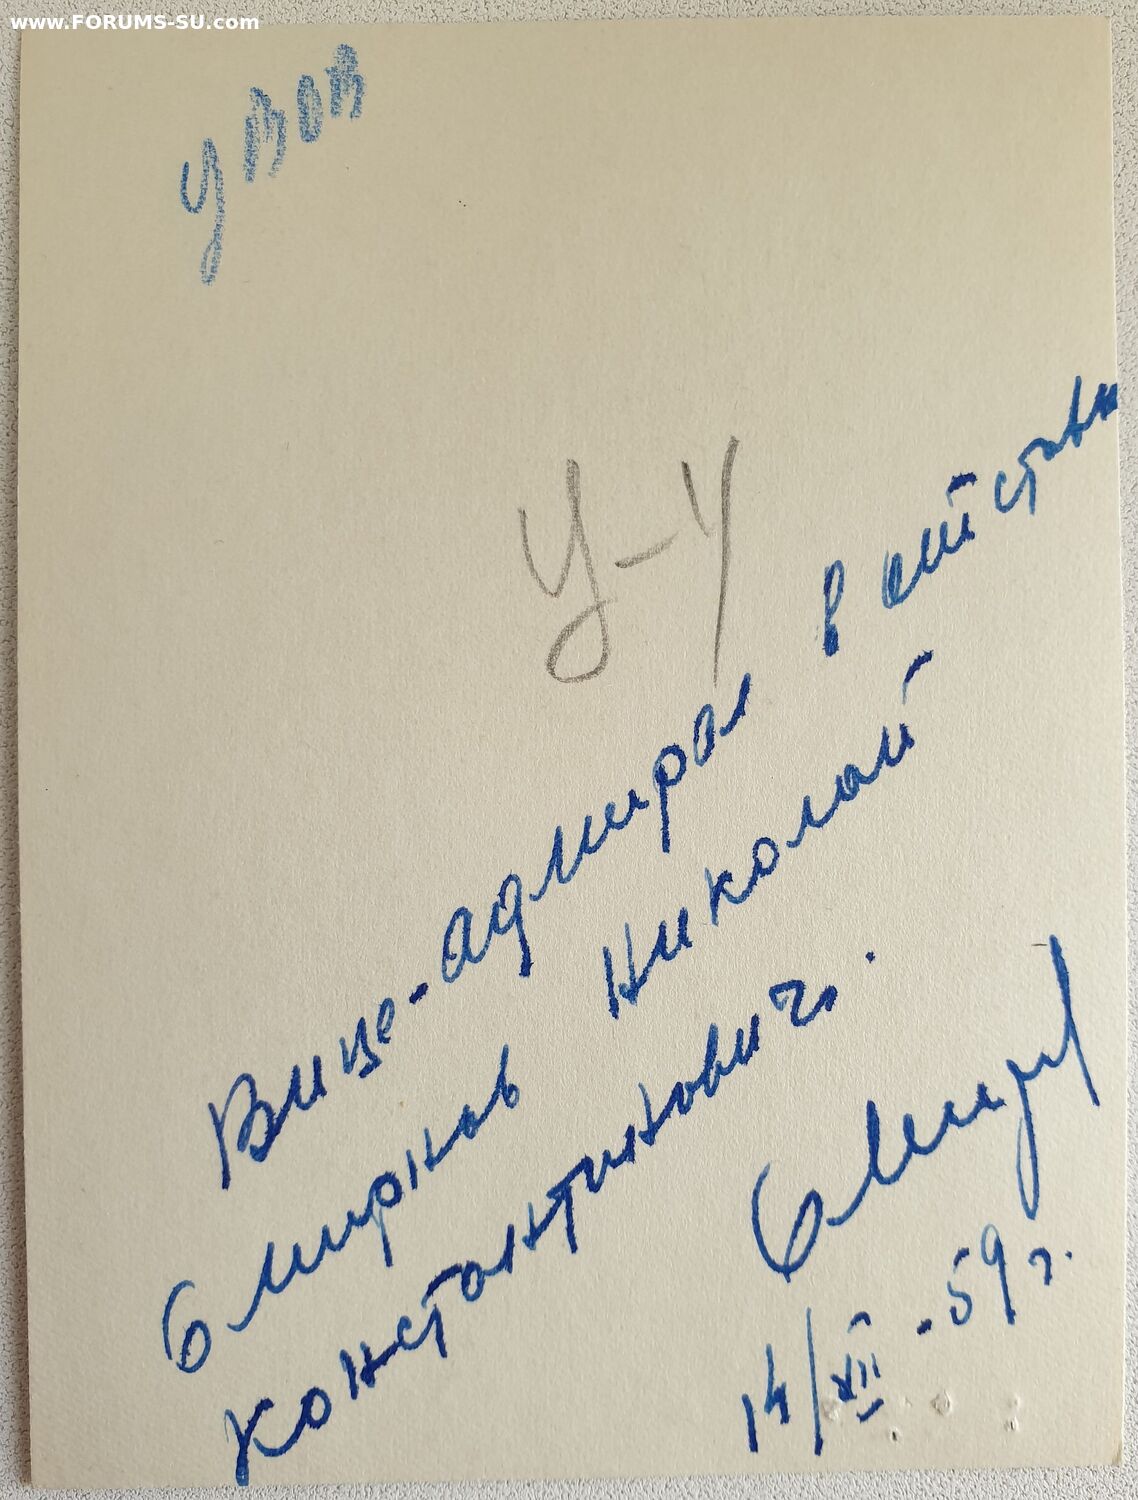 www.FORUMS-SU.com
У ВОВ
У-4
Вице-адмирал в отставки
Смирнов Николай
Константинович.
14/XII-59г.